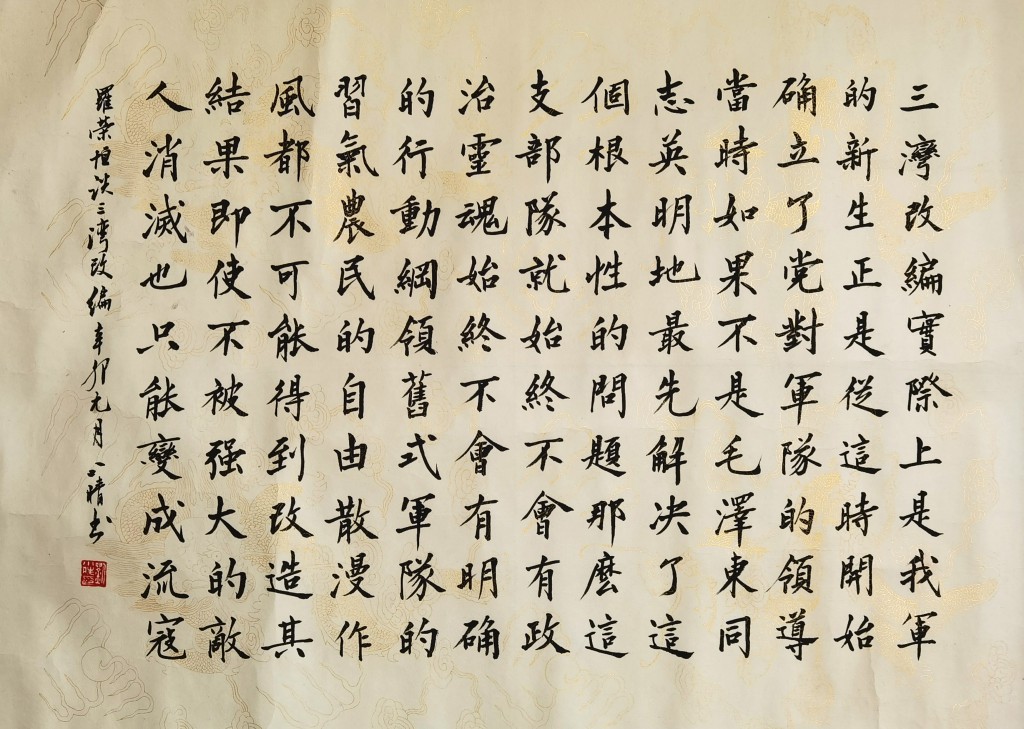 三灣改編實際上是我軍
的新生正是從這時開始
确立了党對軍隊的領導
當時如果不是毛澤東同
志英明地最先解决了這
個根本性的問題那麽這
支部隊就始終不會有政
治靈魂始終不會有明确
的行動綱領舊式軍隊的
習氣農民的自由散漫作
風都不可能得到改造其
結果即使不被强大的敵
人消滅也只能變成流寇
羅荣恒談三灣改編辛卯九月八晴书